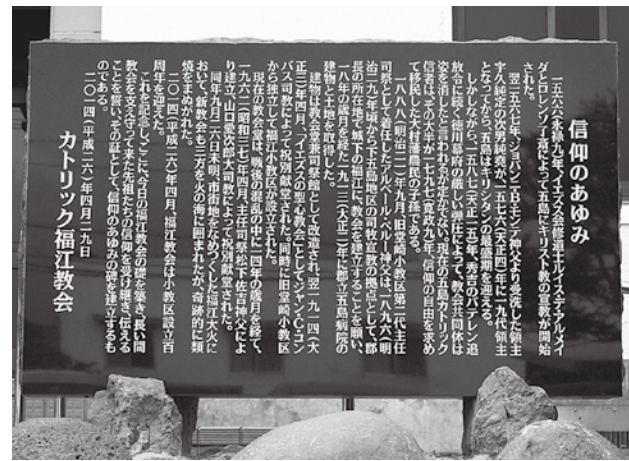 信仰のあゆみ
一五六六(永禄九)年、イエズス会修道士ルイス・デ・アルメイ
ダとロレンソ了斎によって五島にキリスト教の宣教が開始
された。
翌一五六七年、ジョバンニ・B・モンテ神父より受洗した領主
宇久純定の次男純堯が、一五七六(天正四)年に一九代領主
となってから、五島はキリシタンの最盛期を迎える。
しかしながら、一五八七(天正一五)年、秀吉のバテレン追
放令に続く徳川幕府の厳しい弾圧によって、教会共同体は
姿を消したと言われるがたがたない。現在の五島カトリック
信者は、その大半が一七九七(寛政九)年、信仰の自由を求め
て移民した大村藩農民の子孫である。
一八八八(明治二一)年九月、旧堂崎小教区第二代主任
司祭として着任したアルベール・ペルー神父は、一八九六(明
治二九)年頃から下五島地区の司牧宣教の拠点として、郡
長の所在地で城下の福江に、教会を建立することを願い、
一八年の歳月を経た一九一三(大正二)年に郡立五島病院の
建物と土地を取得した。
建物は教会堂兼司祭館として改造され、翌一九一四(大
正三)年四月、「イエズスの聖心教会」としてジャン・C・コン
バス司教によって祝別献堂された。同時に旧堂崎小教区
から独立して福江小教区が設立された。
現在の教会堂は、戦後の混乱の中に一四年の歳月を経て、
一九六二(昭和三七)年四月、主任司祭松下佐吉神父によ
り建立、山口愛次郎大司教によって祝別献堂された。
同年九月二六日未明、市街地をなめつくした福江大火に
おいて、新教会も三方を火の海に囲まれたが、奇跡的に類
焼をまぬがれた。
二〇一四(平成二六)年四月、福江教会は小教区設立百
周年を迎えた。
これを記念し、ここに、今日の福江教会の礎を築き、長い間
教会を支え守って来た先祖たちの信仰を受け継ぎ、伝える
ことを誓い、その証として、信仰のあゆみの碑を建立するも
のである。
二〇一四(平成二六)年四月二九日
カトリック福江教会